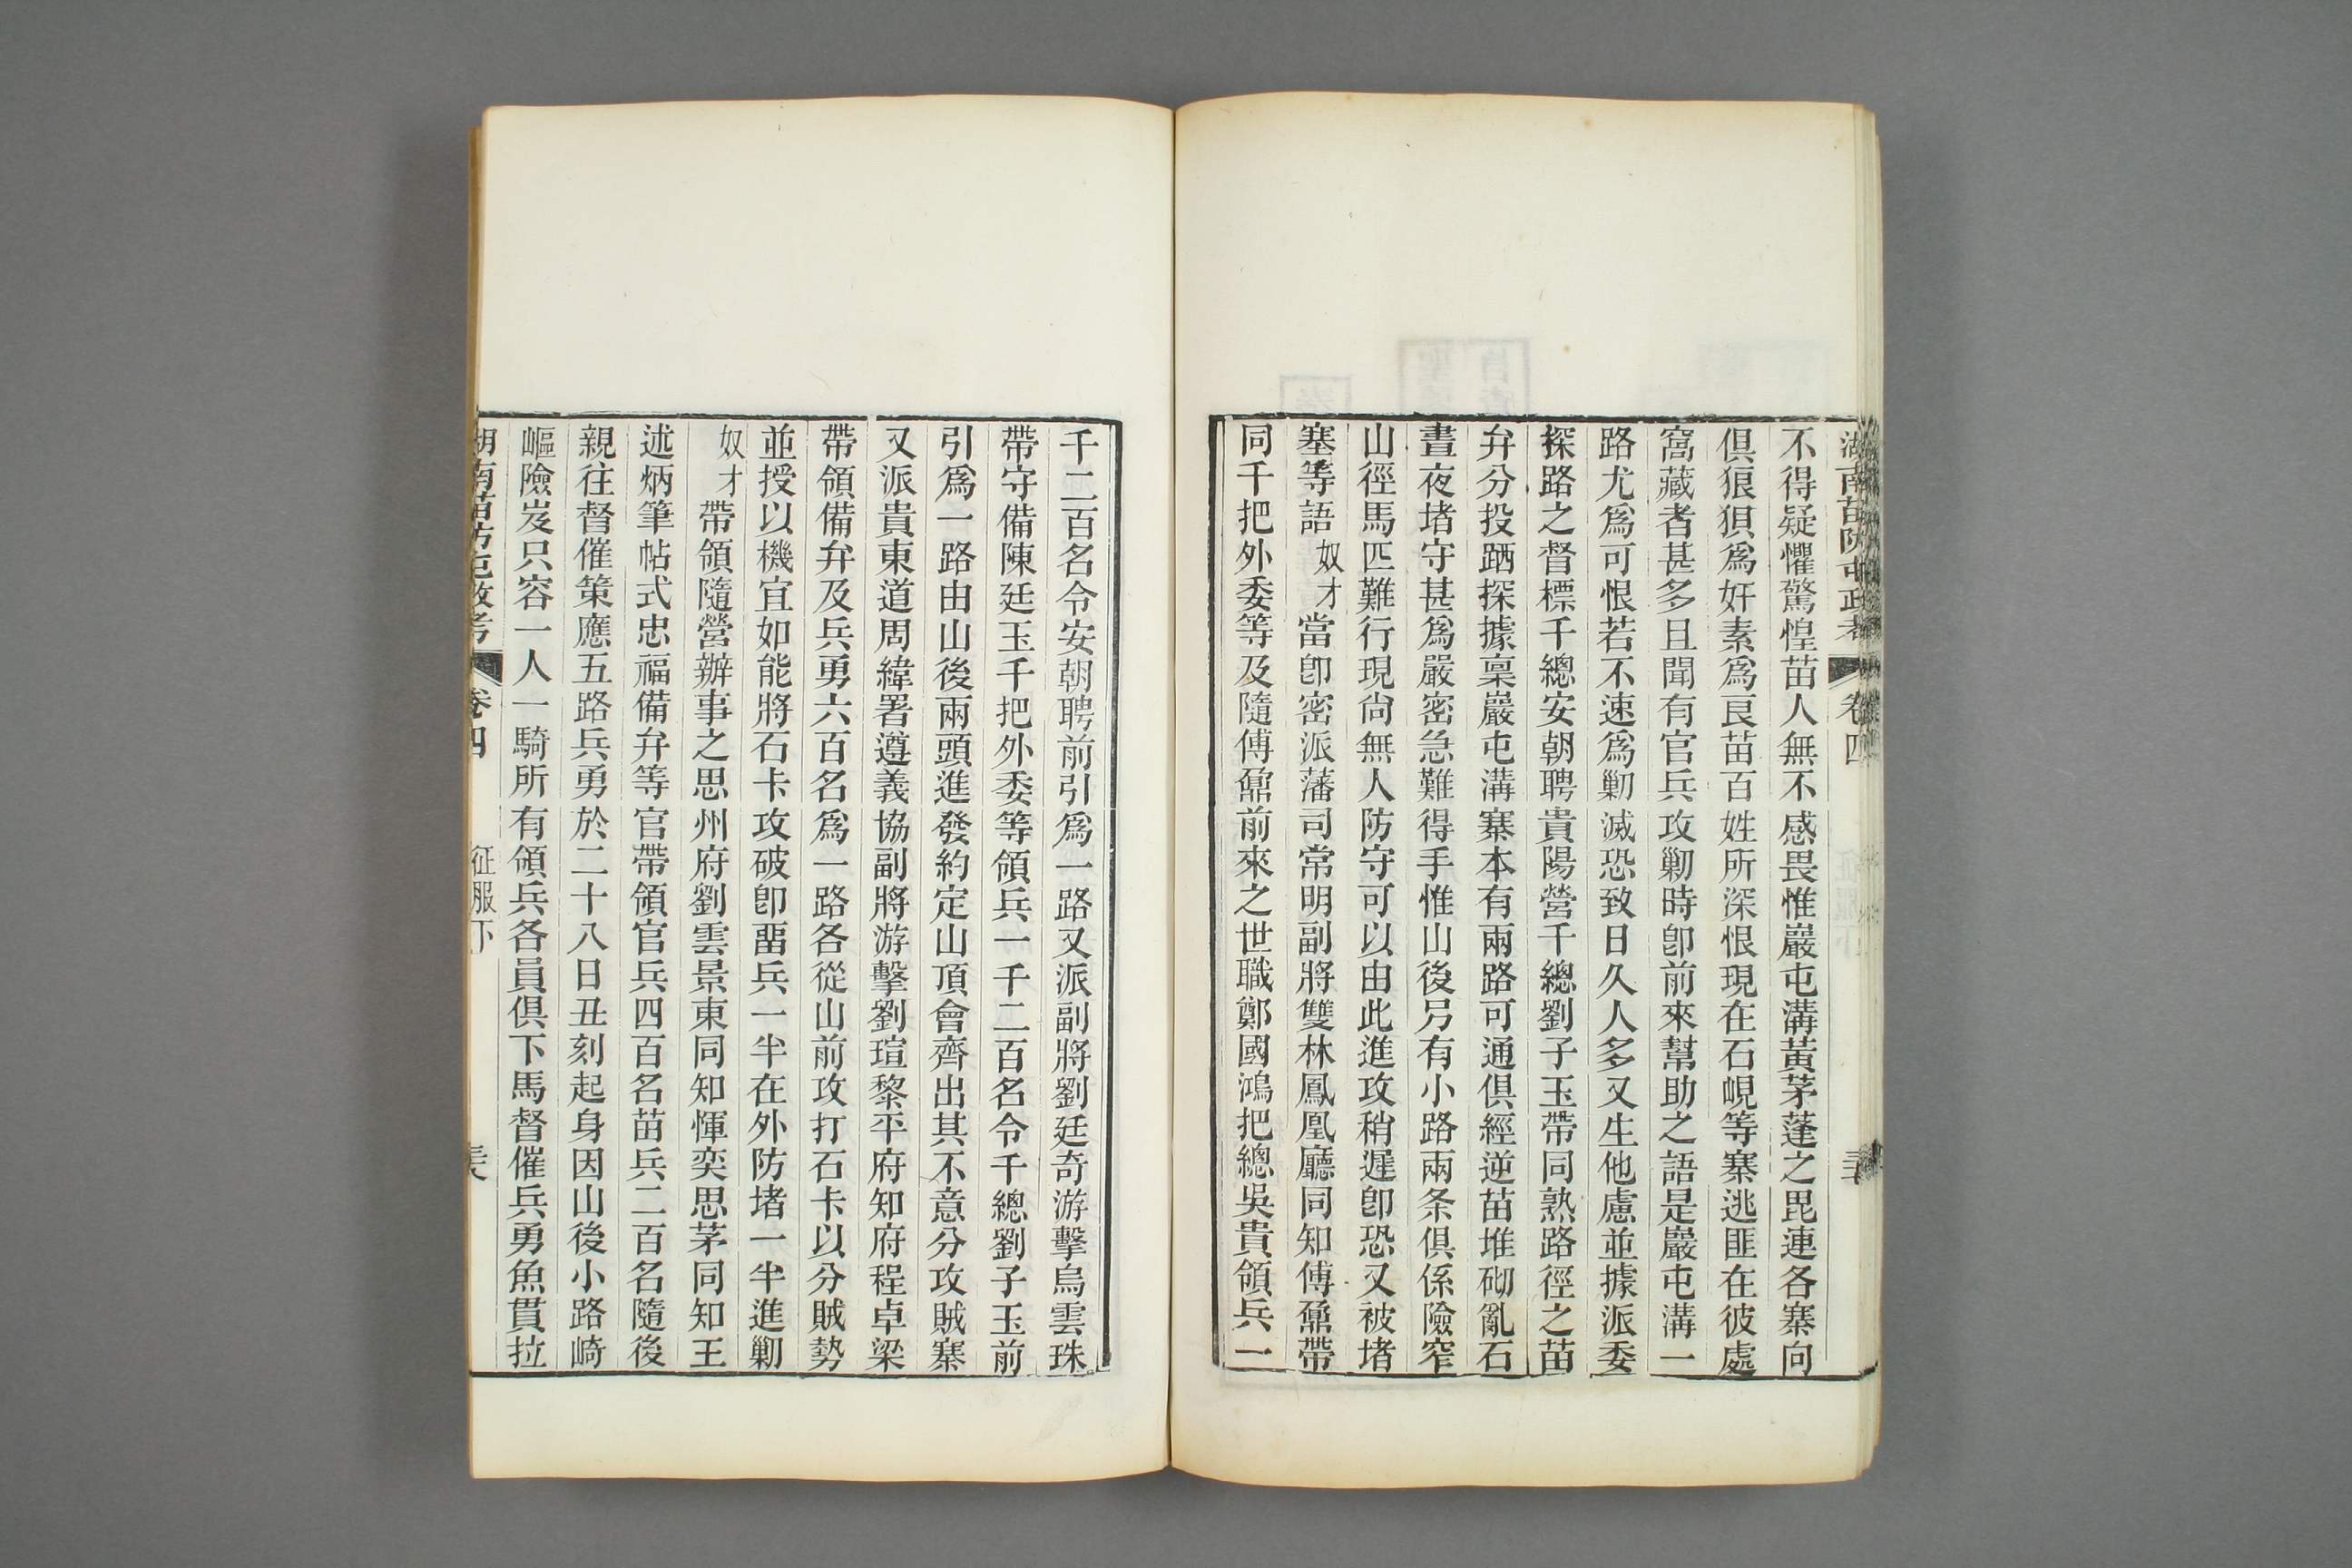 湖南苗防屯政考 卷四
不得疑懼驚惶苗人無不感畏惟巖屯溝黃茅蓬之毘連各寨向
俱狼狽爲奸素爲良苗百姓所深恨現在石峴等寨逃匪在彼處
窩藏者甚多且聞有官兵攻勦時卽前來幫助之語是巖屯溝一
路尤爲可恨若不速爲勦滅恐致日久人多又生他慮並據派委
探路之督標千總安朝聘貴陽營千總劉子玉帶同熟路徑之苗
弁分投跴探據稟巖屯溝寨本有兩路可通俱經逆苗堆砌亂石
晝夜堵守甚爲嚴密急難得手惟山後另有小路兩条俱係險窄
山徑馬匹難行現尙無人防守可以由此進攻稍遲卽恐又被堵
塞等語奴才當卽密派藩司常明副將雙林鳳凰廳同知傅鼐帶
同千把外委等及隨傅鼐前來之世職鄭國鴻把總吳貴領兵一
千二百名令安朝聘前引爲一路又派副將劉廷奇游擊烏雲珠
帶守備陳廷玉千把外委等領兵一千二百名令千總劉子玉前
引爲一路由山後兩頭進發約定山頂會齊出其不意分攻賊寨
又派貴東道周緯署遵義協副將游擊劉瑄黎平府知府程卓梁
帶領備弁及兵勇六百名爲一路各從山前攻打石卡以分賊勢
並授以機宜如能將石卡攻破卽畱兵一半在外防堵一半進勦
奴才帶領隨營辦事之思州府劉雲景東同知惲奕思茅同知王
述炳筆帖式忠福備弁等官帶領官兵四百名苗兵二百名隨後
親往督催策應五路兵勇於二十八日丑刻起身因山後小路崎
嶇險岌只容一人一騎所有領兵各員俱下馬督催兵勇魚貫拉
湖南苗防屯政考 卷四 征服下